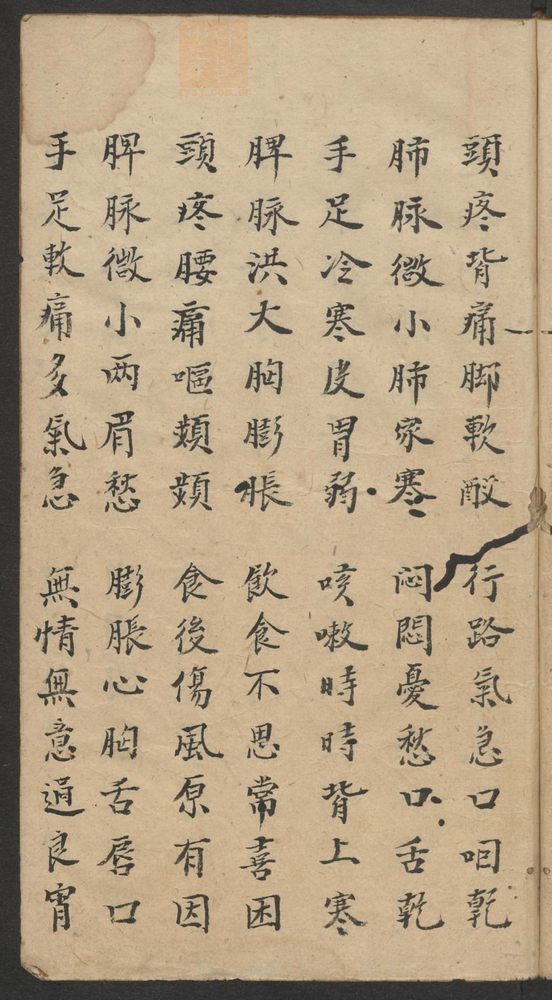 頭疼背痛脚軟酸　行路氣急口咽乾
肺脉微小肺家寒　闷悶憂愁口舌乾
手足冷寒皮胃弱　咳嗽時時背上寒
脾脉洪大胸膨脹　飲食不思常喜困
頭疼腰痛嘔頻頻　食後傷風原有因
脾脉微小两眉愁　膨脹心胸舌唇口
手足軟痛多氣急　無情無意過良宵